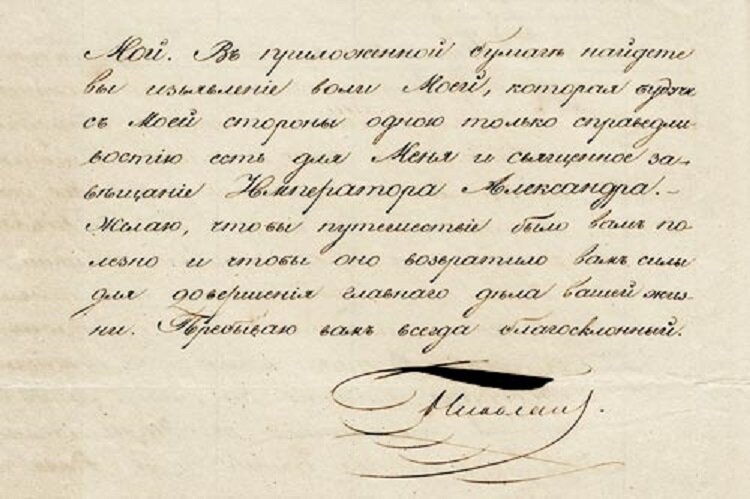 Мой. Въ приложенной бумагѣ найдете
вы изъявленіе воли Моей, которая будучи
съ Моей стороны одною только справедли-
востію есть для Меня и священное за-
вѣщаніе Императора Александра. –
Желаю, чтобы путешествіе было вамъ по
лезно и чтобы оно возвратило вамъ силы
для довершенія главнаго дѣла вашей жиз-
ни. Пребываю вамъ всегда благосклонный.
Николай.